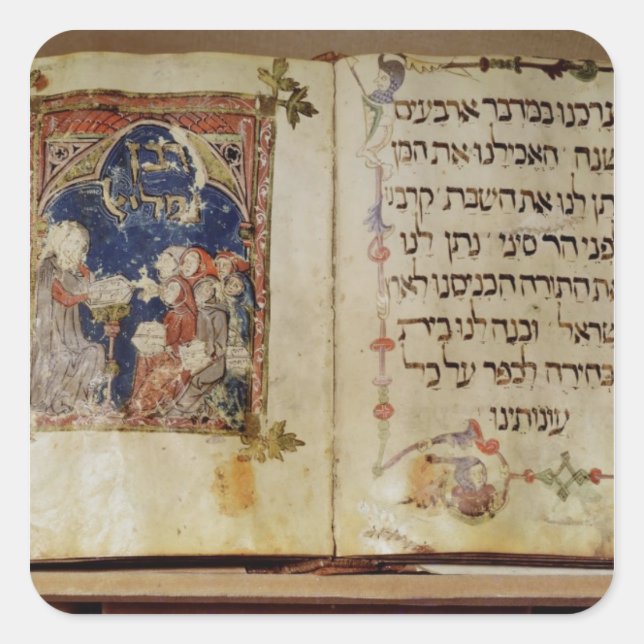 צרכנו במדבר ארבעים
שנה האכילנו את המן
תן לנו את השבת קרבנו
פני הר סיני נתן לנו
ת התורה הכניסנו לאר
שראל ובנה לנו בית
בחירה לכפר על כל
עונותינו
רבן
גמליאל